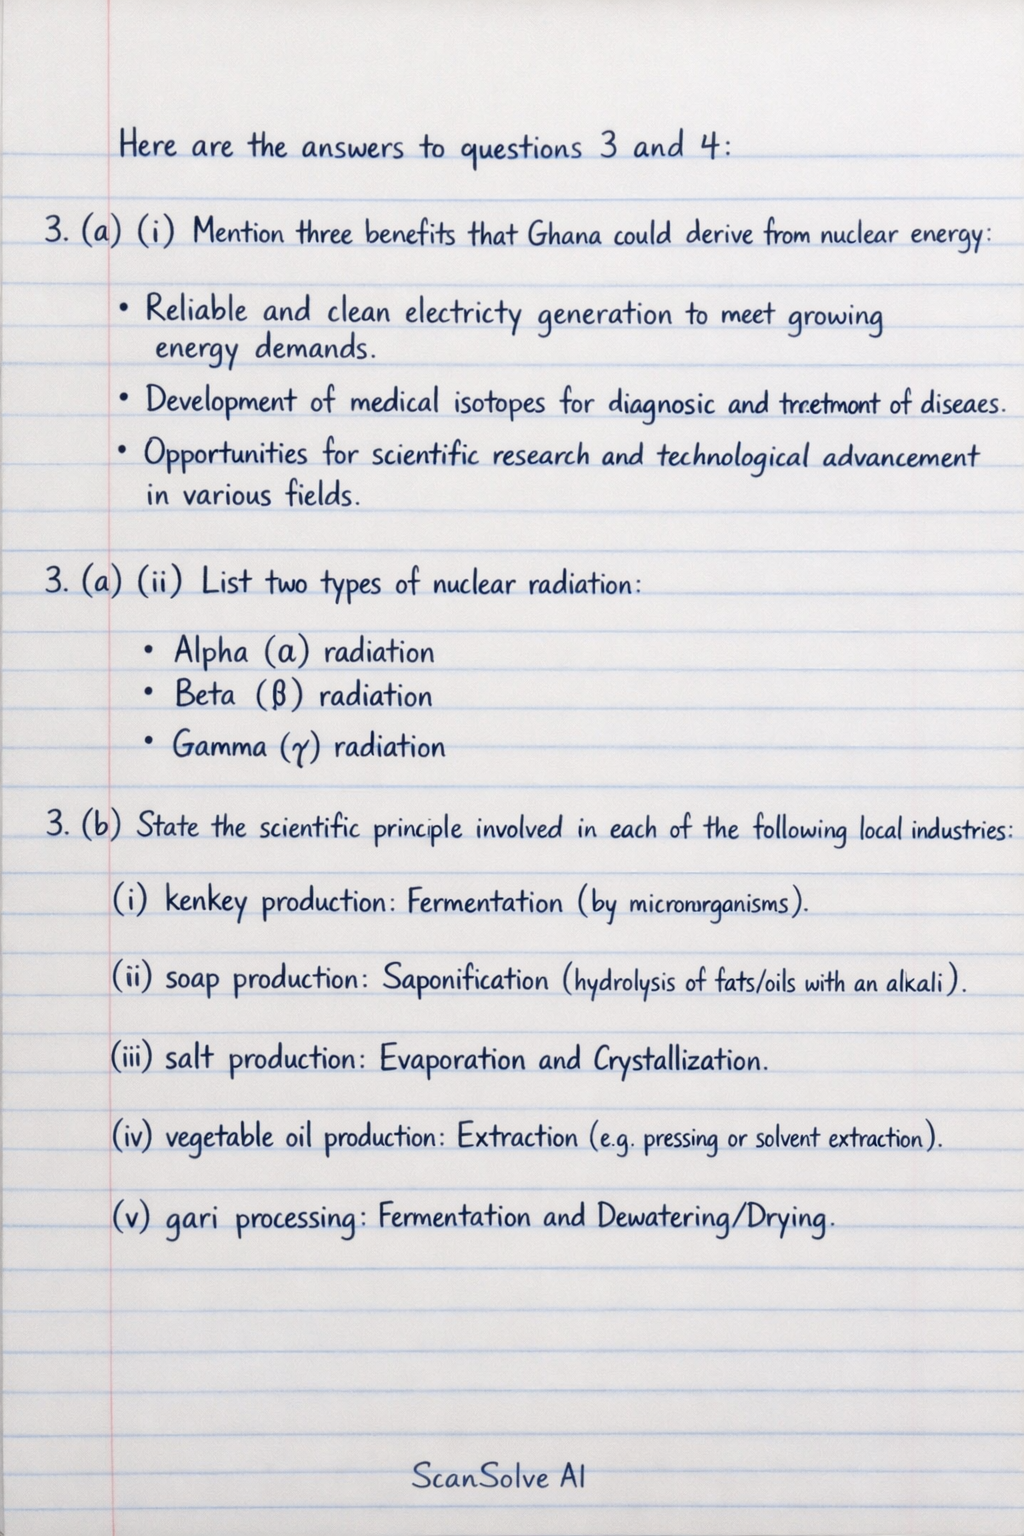 Here are the answers to questions 3 and 4:
3. (a) (i) Mention three benefits that Ghana could derive from nuclear energy:
• Reliable and clean electricty generation to meet growing
energy demands.
• Development of medical isotopes for diagnosic and treetmont of diseaes.
• Opportunities for scientific research and technological advancement
in various fields.
3. (a) (ii) List two types of nuclear radiation:
• Alpha (α) radiation
• Beta (β) radiation
• Gamma (γ) radiation
3. (b) State the scientific principle involved in each of the following local industries:
(i) kenkey production: Fermentation (by micrororganisms).
(ii) soap production: Saponification (hydrolysis of fats/oils with an alkali).
(iii) salt production: Evaporation and Crystallization.
(iv) vegetable oil production: Extraction (e.g. pressing or solvent extraction).
(v) gari processing: Fermentation and Dewatering/Drying.
ScanSolve AI